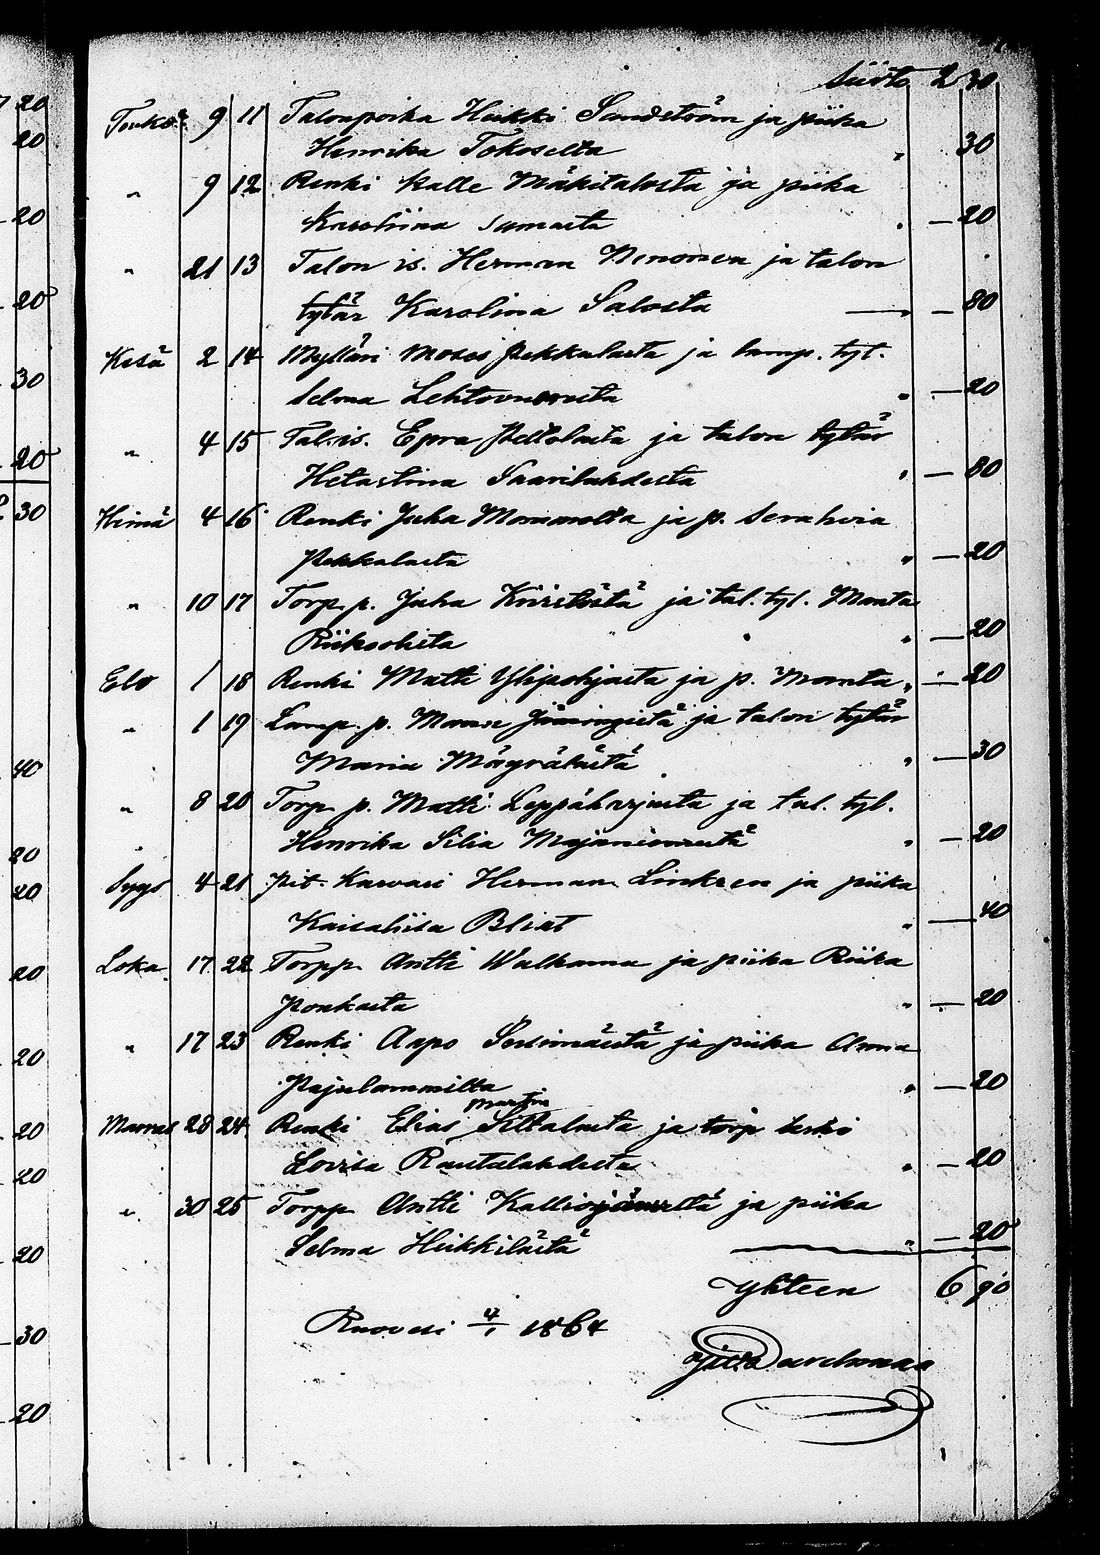 Siirto 2 30
Touko 9 11 Talonpoika Heikki Sundström ja piika
Henrika Tokoselta " 30
" 9 12 Renki Kalle Mäkitalosta ja piika
Karoliina samasta " — 20
" 21 13 Talon is. Herman Nenonen ja talon
tytär Karolina Salosta — — 80
Kesä 2 14 Mylläri Moses Pekkalasta ja lamp. tyt.
Selma Lehtovuoresta " — 20
" 4 15 Tal. is. Epra Peltolasta ja talon tytär
Hetastina Saarilahdesta " — 80
Heinä 4 16 Renki Juha Mommolta ja p. Serahvia
Pekkalasta " — 20
" 10 17 Torp. p. Juha ja tal. tyt. Manta
" — 20
Elo 1 18 Renki Matti Ylipohjasta ja p. Manta " — 20
" 1 19 Lamp. p. Manu ja talon tytär
Maria Mäyrälästä " — 30
" 8 20 Torp. p. Matti Leppäharjusta ja tal. tyt.
Henrika Silia Majaniemestä " — 20
Syys 4 21 pit. Karvari Herman Linkren ja piika
Kaisaliisa Bliat " — 40
Loka 17 22 Torpp. Antti Walkama ja piika Riika
Poukasta " — 20
" 17 23 Renki Aapo ja piika Anna
Pajulammilta " — 20
Marras 28 24 Renki Elias Martin Siltalasta ja torp leski
Lovisa Rautalahdesta " — 20
" 30 25 Torpp. Antti Kalliojärveltä ja piika
Selma Heikkilästä " — 20
Yhteen 6 90
Ruovesi 4/1 1864